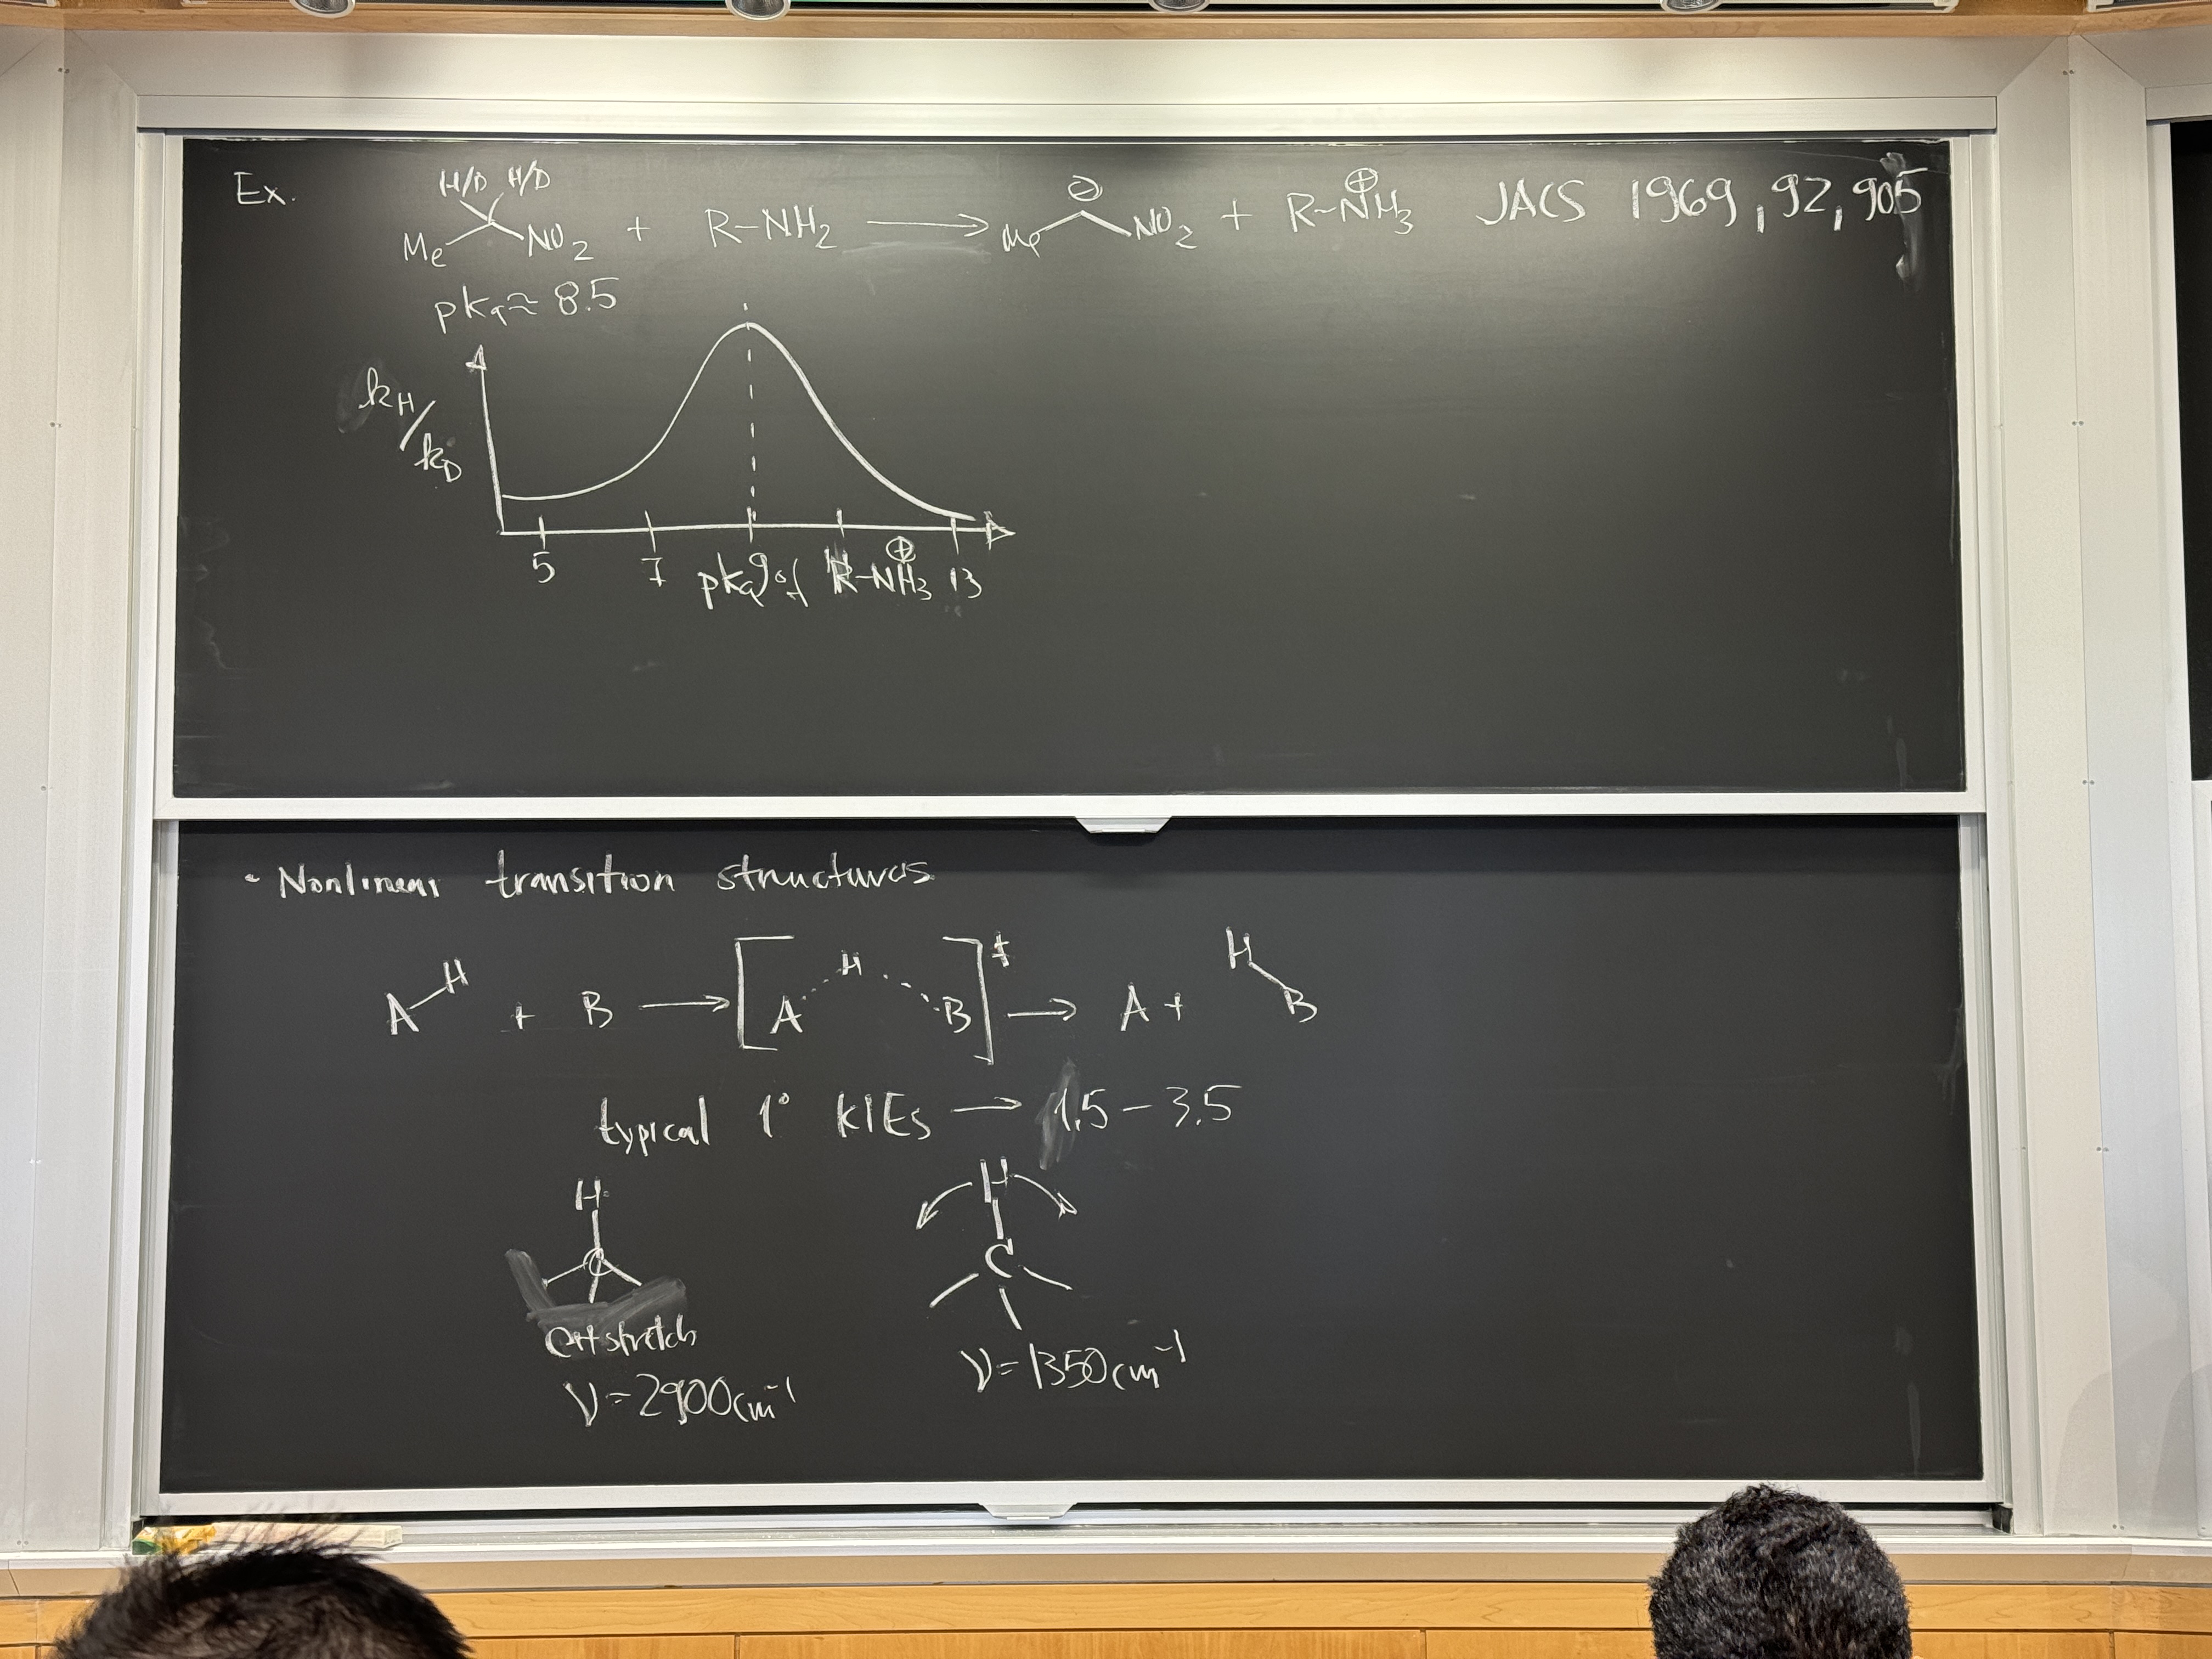 Ex.
H/D H/D
Me NO2 + R-NH2 → Me ⊖ NO2 + R-N⊕H3 JACS 1969, 92, 905
pka ≈ 8.5
kH/kD
5 7 9 13
pka of R-N⊕H3
• Nonlinear transition structures
A-H + B → [A H B]‡ → A + H-B
typical 1° KIEs → 1.5 - 3.5
H H
C C
CH stretch
ν = 2900 cm⁻¹ ν = 1350 cm⁻¹